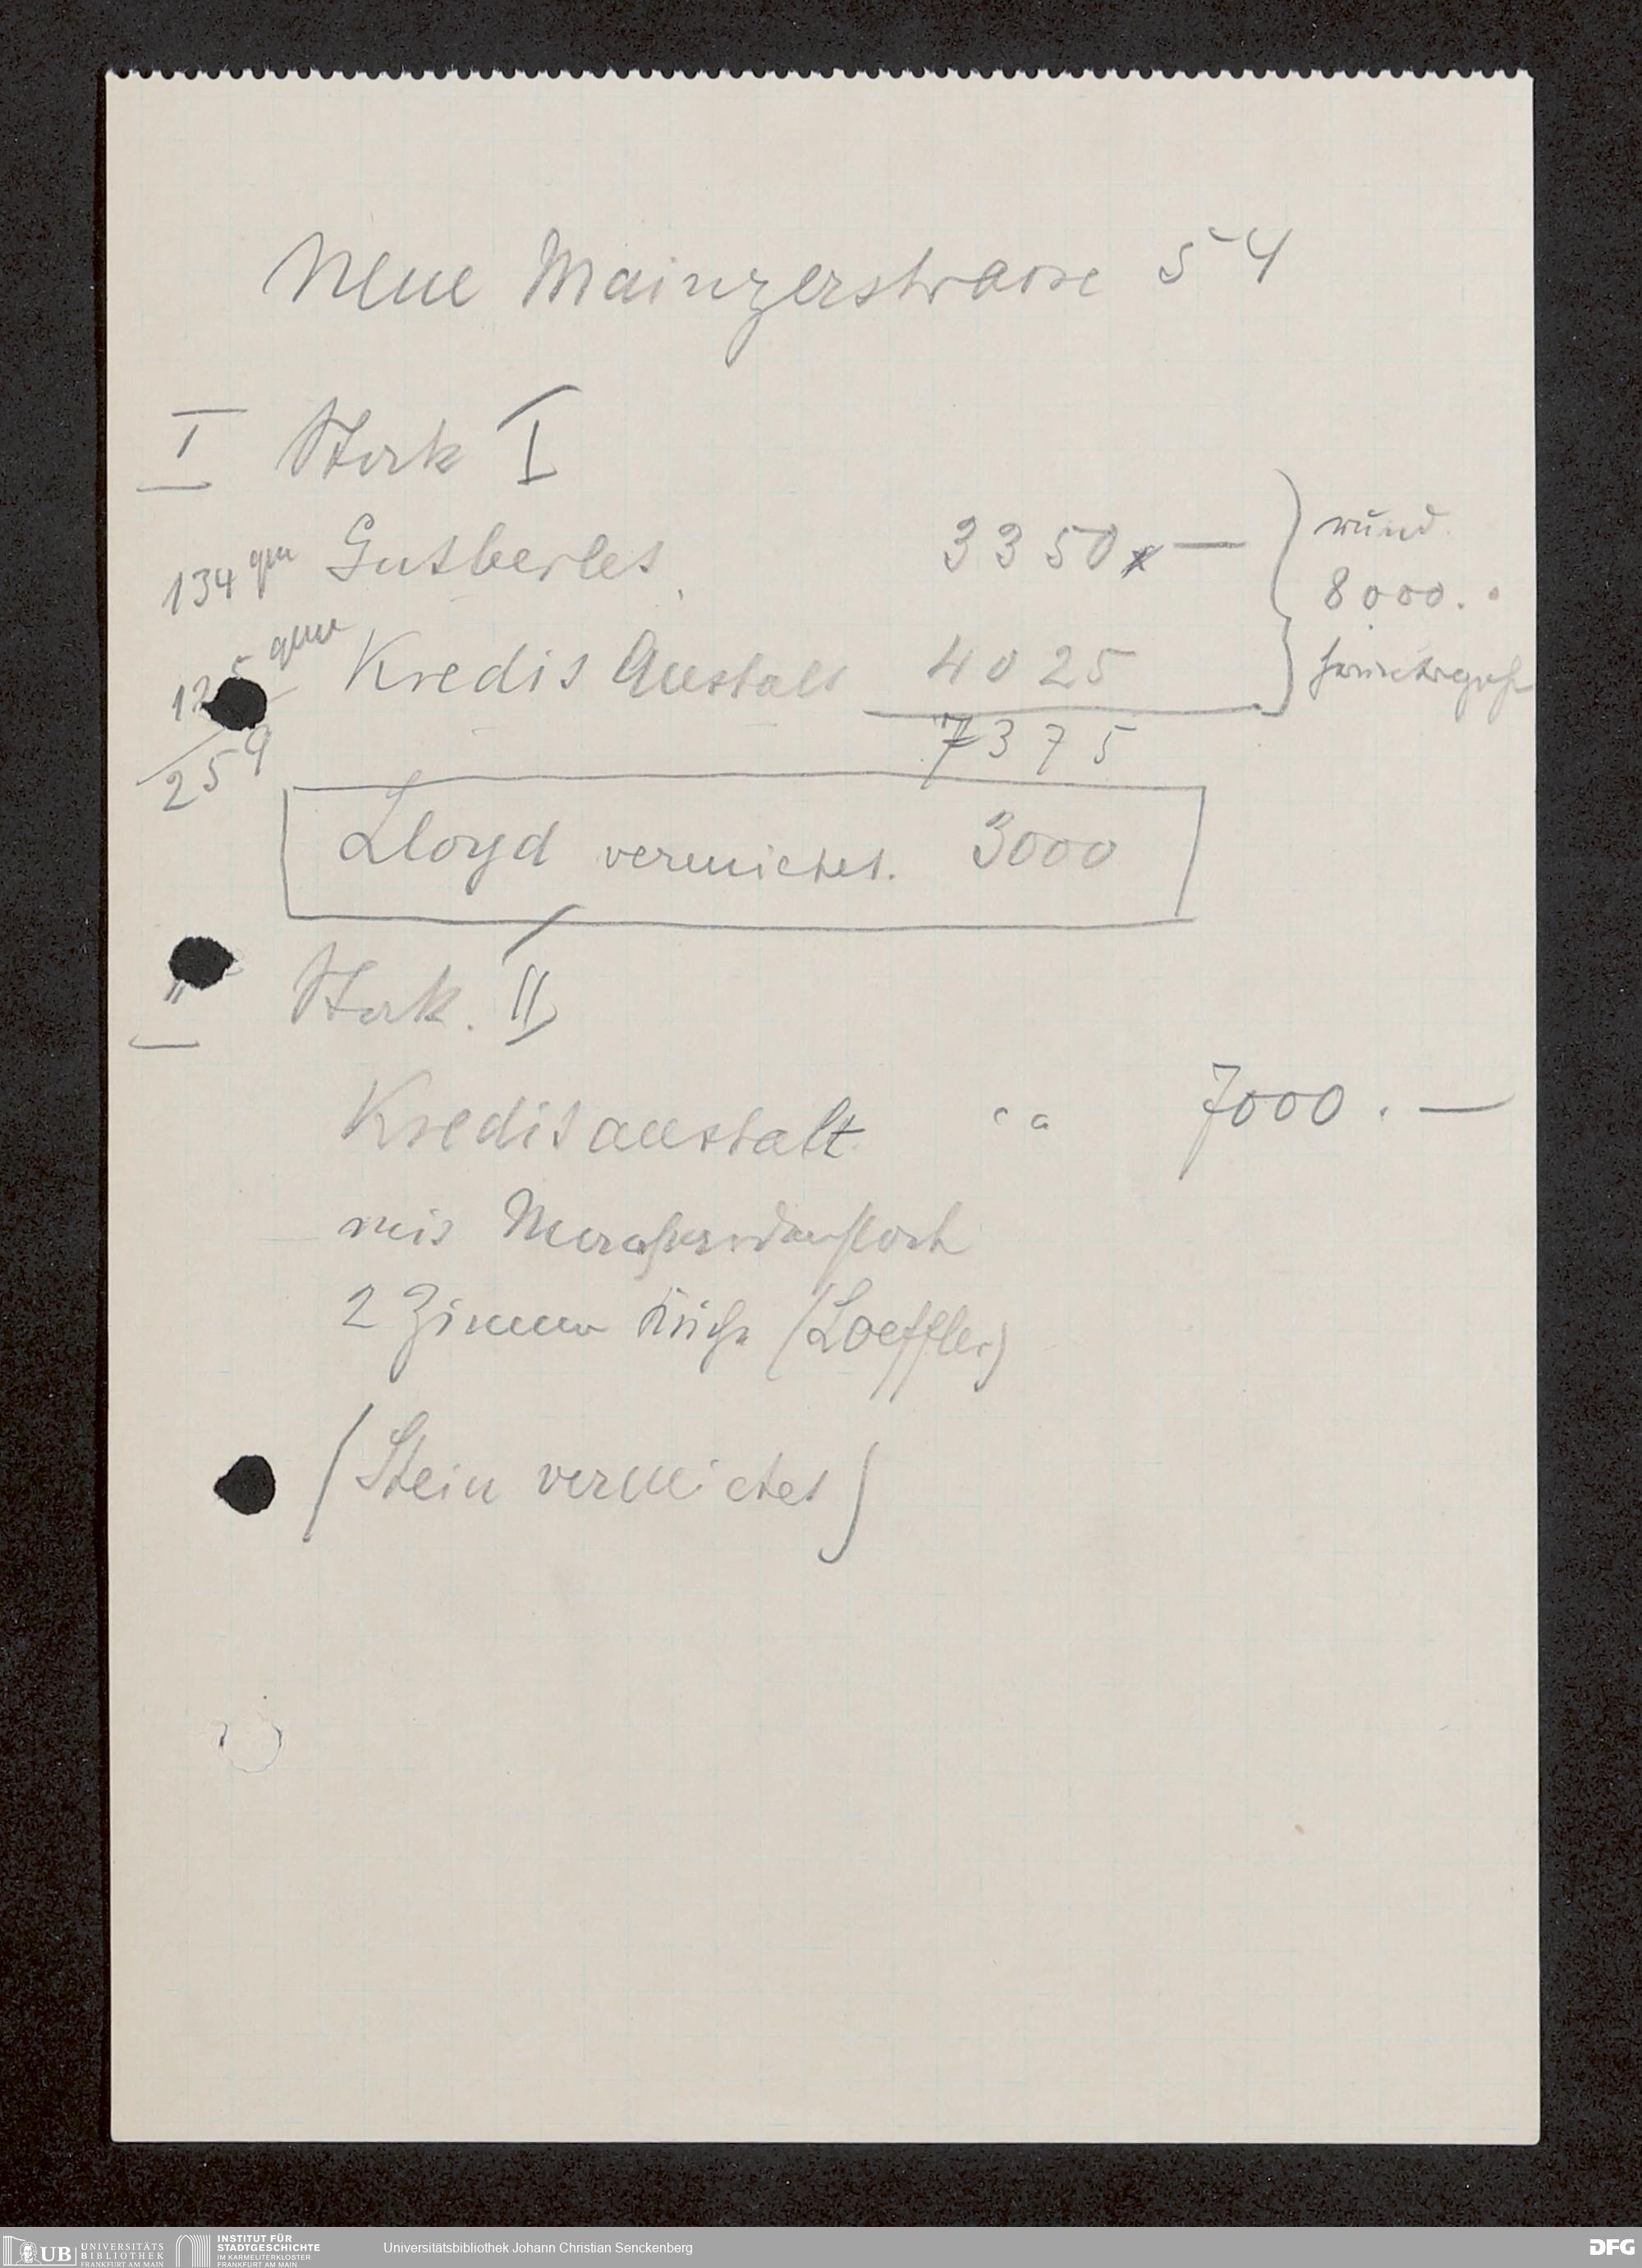 Neue Mainzerstrasse 54
I Stock I
134 qm Gutberlet 3350.— rund
8000.
125 qm Kredit Anstalt 4025
259 7375
Lloyd vermietet. 3000
II Stock. II
Kreditanstalt ca 7000.—
mit
2 Zimmer Küche (Loeffler)
(Stein vermietet)
UB UNIVERSITÄTS BIBLIOTHEK FRANKFURT AM MAIN
INSTITUT FÜR STADTGESCHICHTE IM KARMELITERKLOSTER FRANKFURT AM MAIN
Universitätsbibliothek Johann Christian Senckenberg
DFG